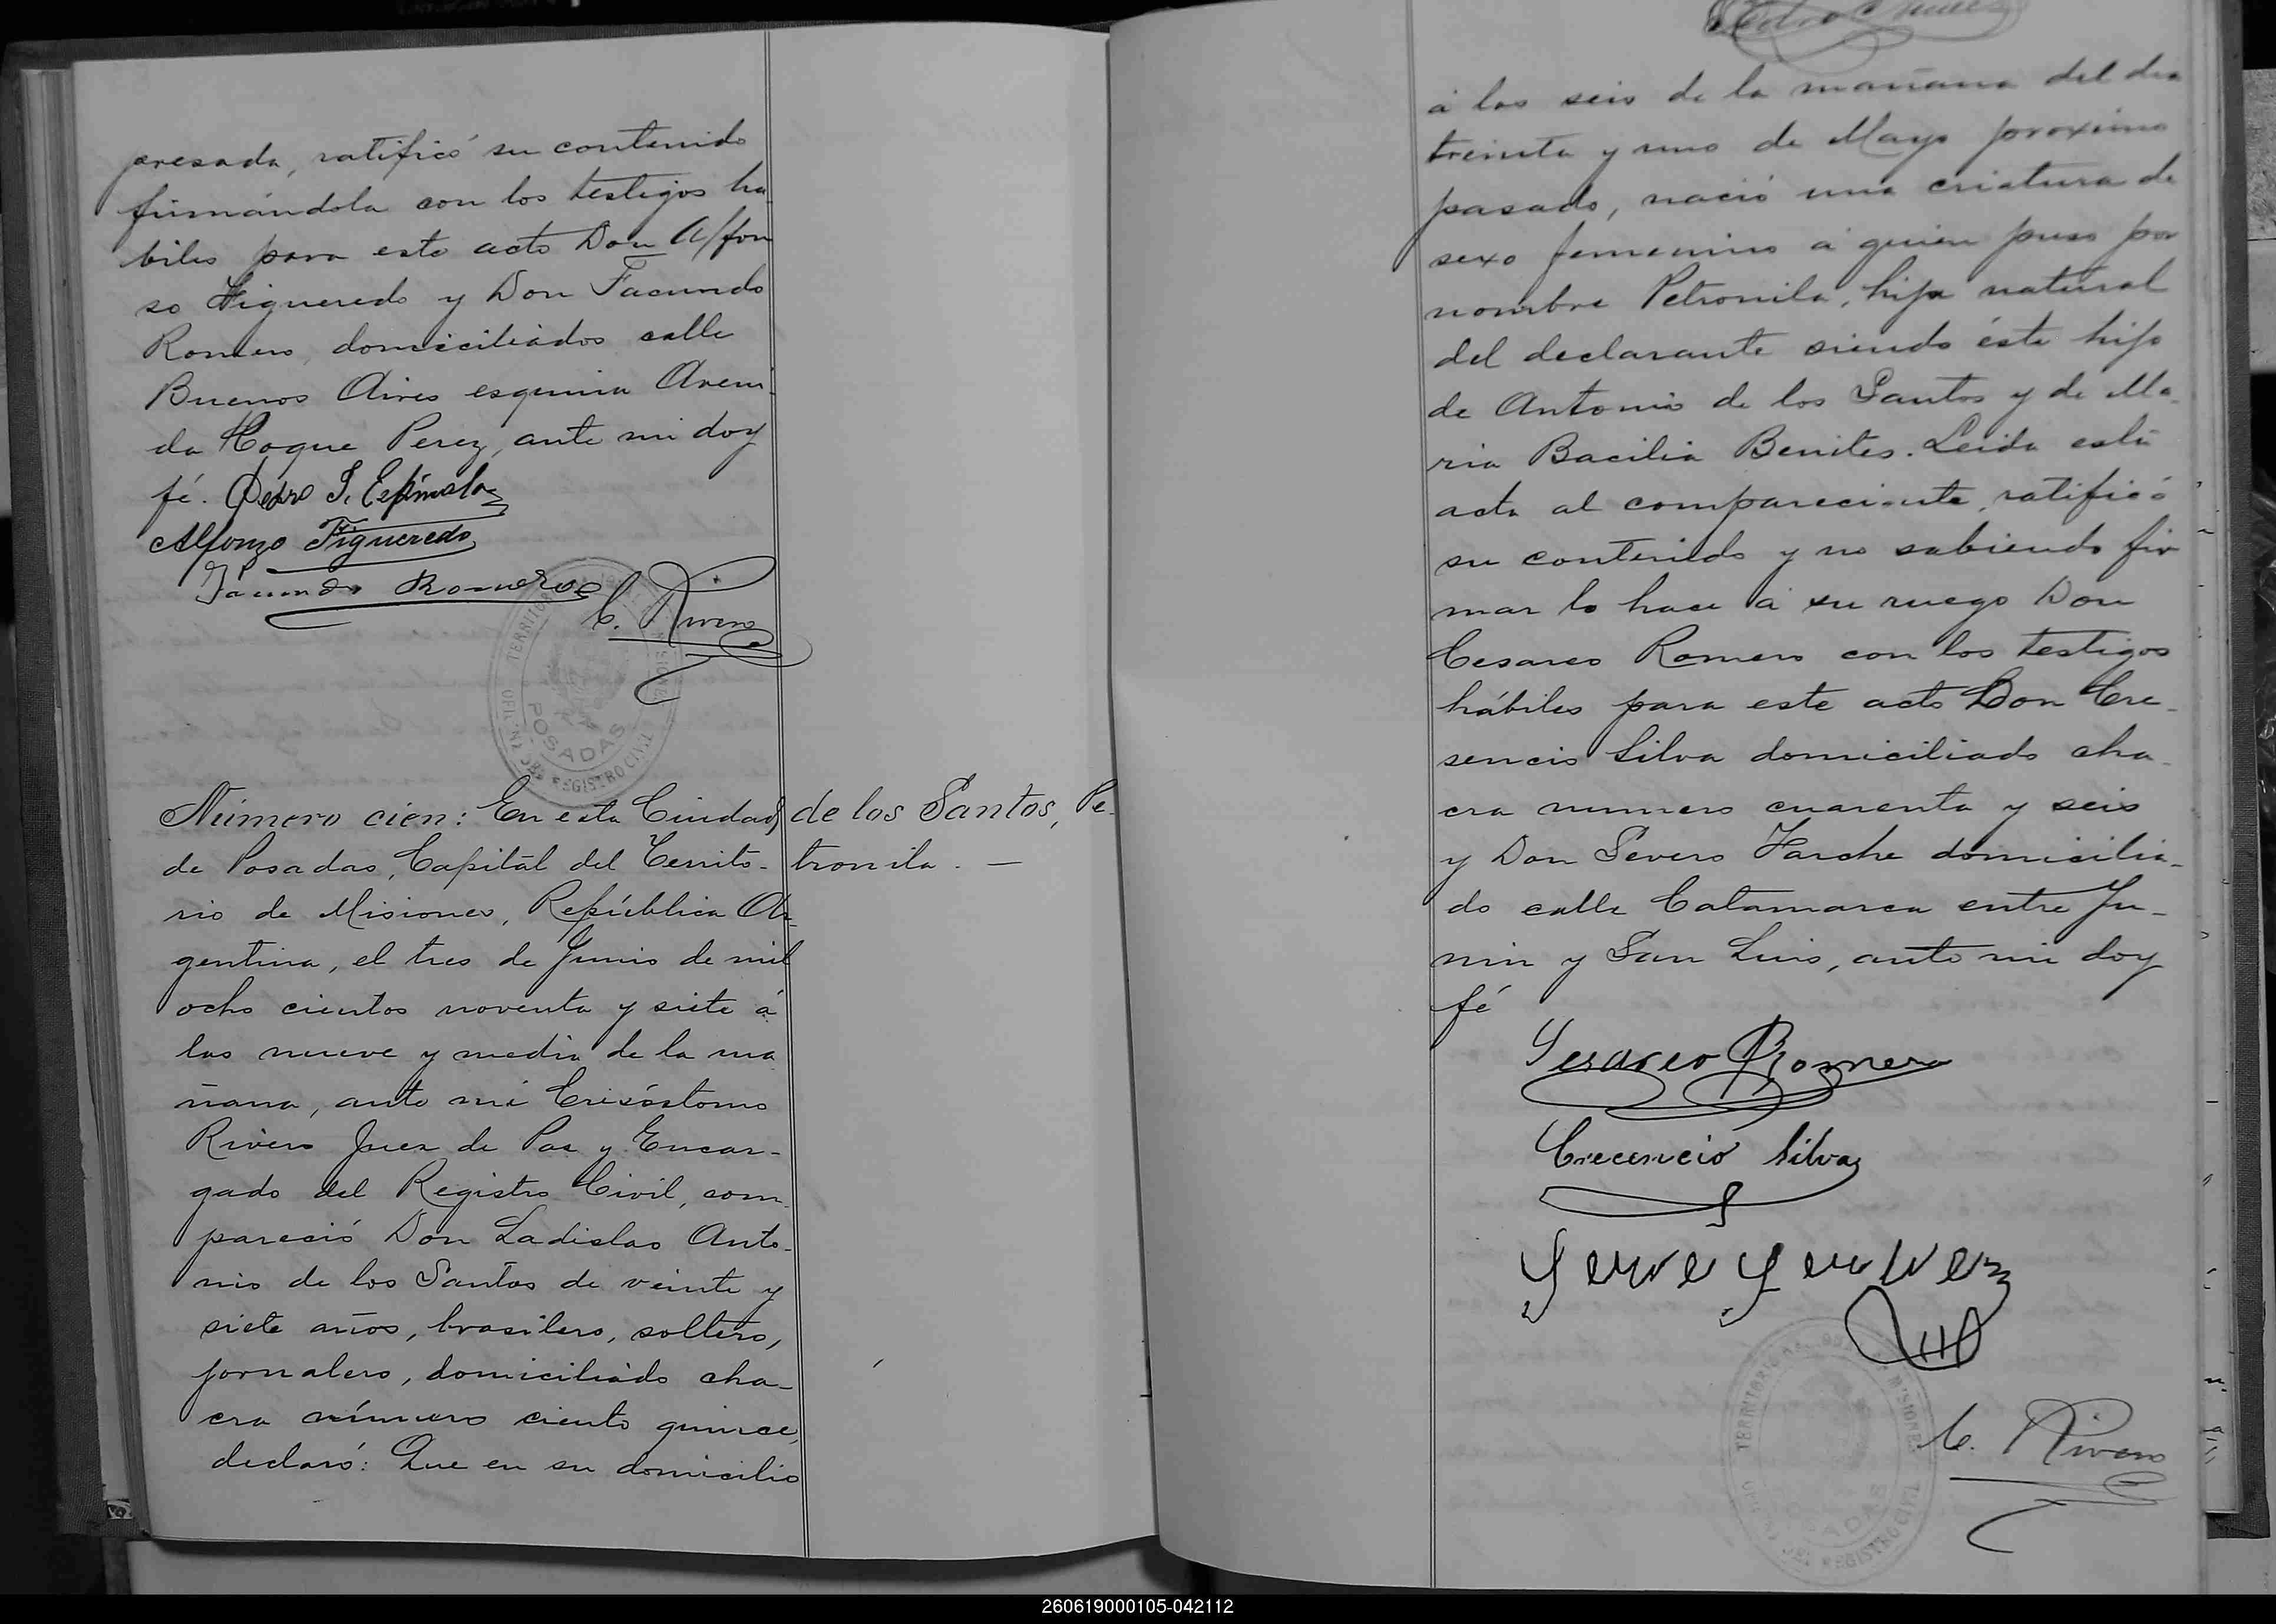 presada, ratificó su contenido
firmándola con los testigos ha
biles para este acto Don Alfon
so Figueredo y Don Facundo
Romero, domiciliados calle
Buenos Aires esquina Aveni
da Roque Perez, ante mi doy
fé. Pedro I. Espínola
Alfonzo Figueredo
Facundo Romero
C. Rivero
TERRITORIO MISIONES
POSADAS
OFICINA DEL REGISTRO CIVIL
Número cien: En esta Ciudad
de Posadas, Capital del Territo-
rio de Misiones, República Ar
gentina, el tres de Junio de mil
ocho cientos noventa y siete á
las nueve y media de la ma
ñana, ante mi Crisóstomo
Rivero Juez de Paz y Encar-
gado del Registro Civil, com
pareció Don Ladislao Anto-
nio de los Santos de veinte y
siete años, brasilero, soltero,
jornalero, domiciliado cha-
cra número ciento quince,
declaró: Que en su domicilio
de los Santos, Pe-
tronila. —
á las seis de la mañana del dia
treinta y uno de Mayo proximo
pasado, nació una criatura de
sexo femenino á quien puso por
nombre Petronila, hija natural
del declarante siendo éste hijo
de Antonio de los Santos y de Ma-
ria Bacilia Benites. Leida esta
acta al compareciente, ratificó
su contenido y no sabiendo fir
mar lo hace á su ruego Don
Cesareo Romero con los testigos
hábiles para este acto Don Cre-
sencio Silva domiciliado cha-
cra numero cuarenta y seis
y Don Severo domicilia-
do calle Catamarca entre Ju-
nin y San Luis, ante mi doy
fé
Sesareo Romero
Crecencio Silva
C. Rivero
TERRITORIO MISIONES
POSADAS
OFICINA DEL REGISTRO CIVIL
260619000105-042112